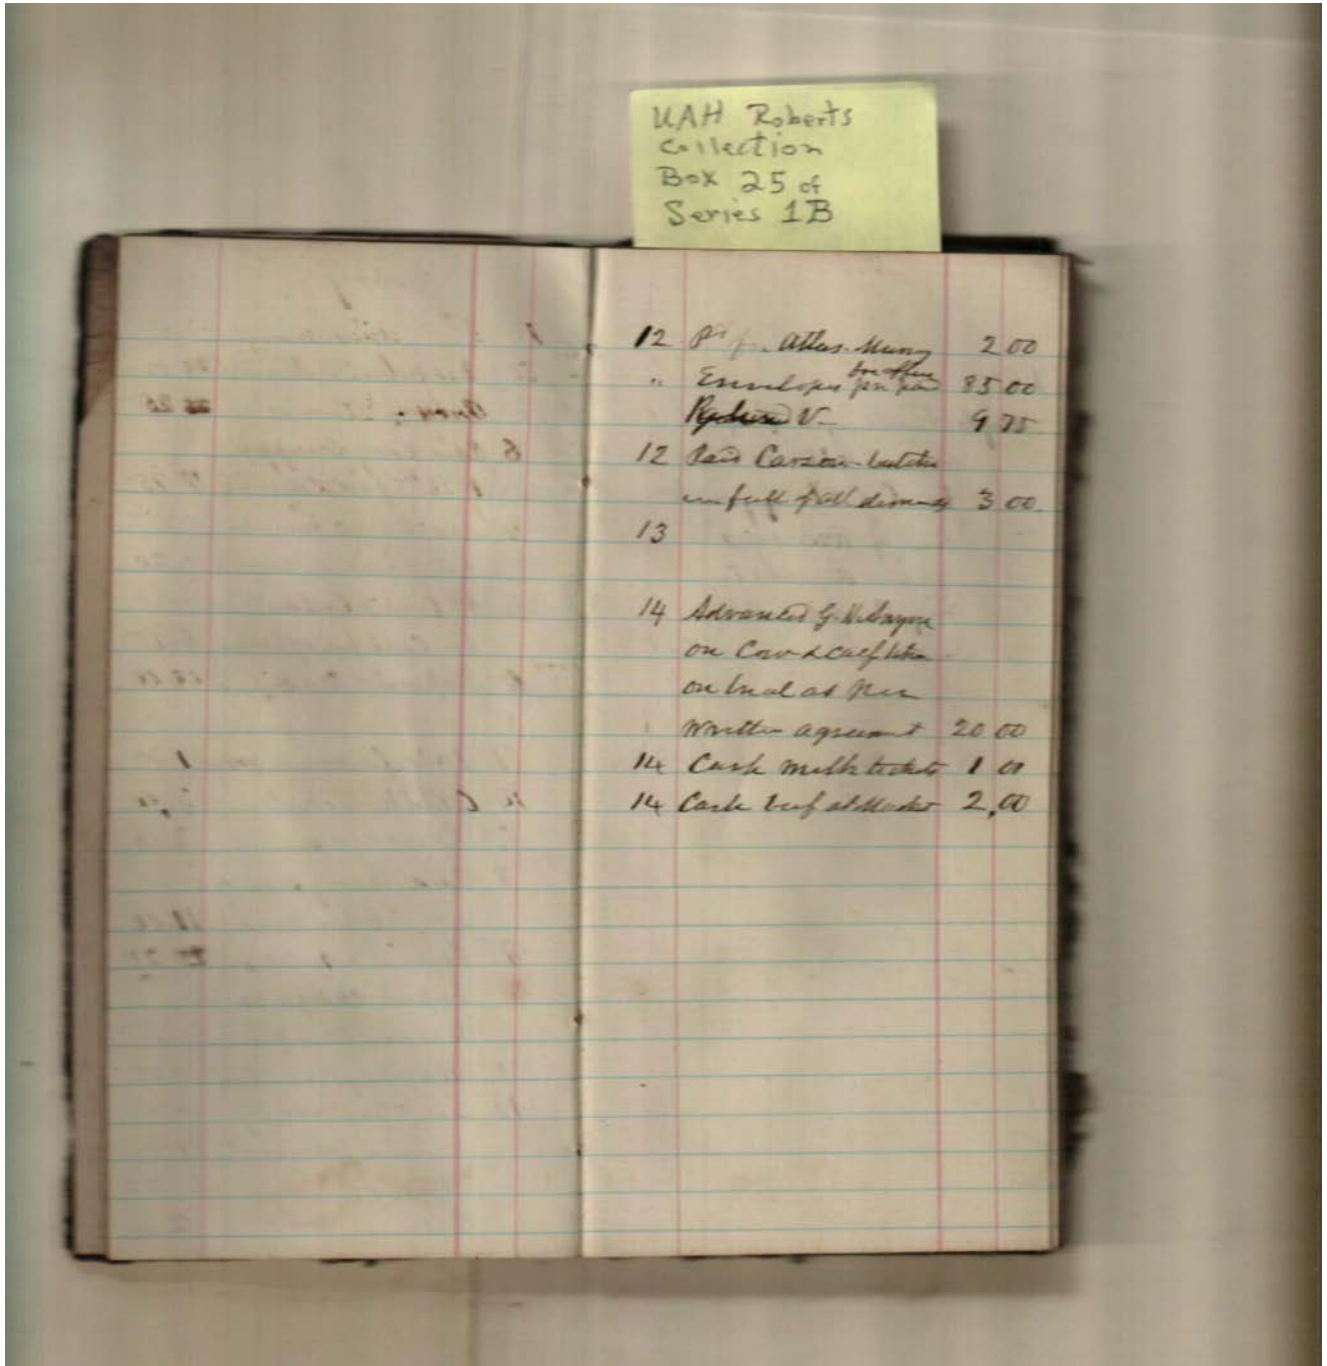 UAH Roberts
Collection
Box 25 of
Series 1B
12 Pd Atlas 2 00
" Envelopes 85 00
V 9 75
12 Paid Carson butcher
in full of all demands 3 00
13
14 Advanced G.
on Cow & calf taken
on trial as per
written agreement 20 00
14 Cash milk tickets 1 00
14 Cash beef at Market 2,00